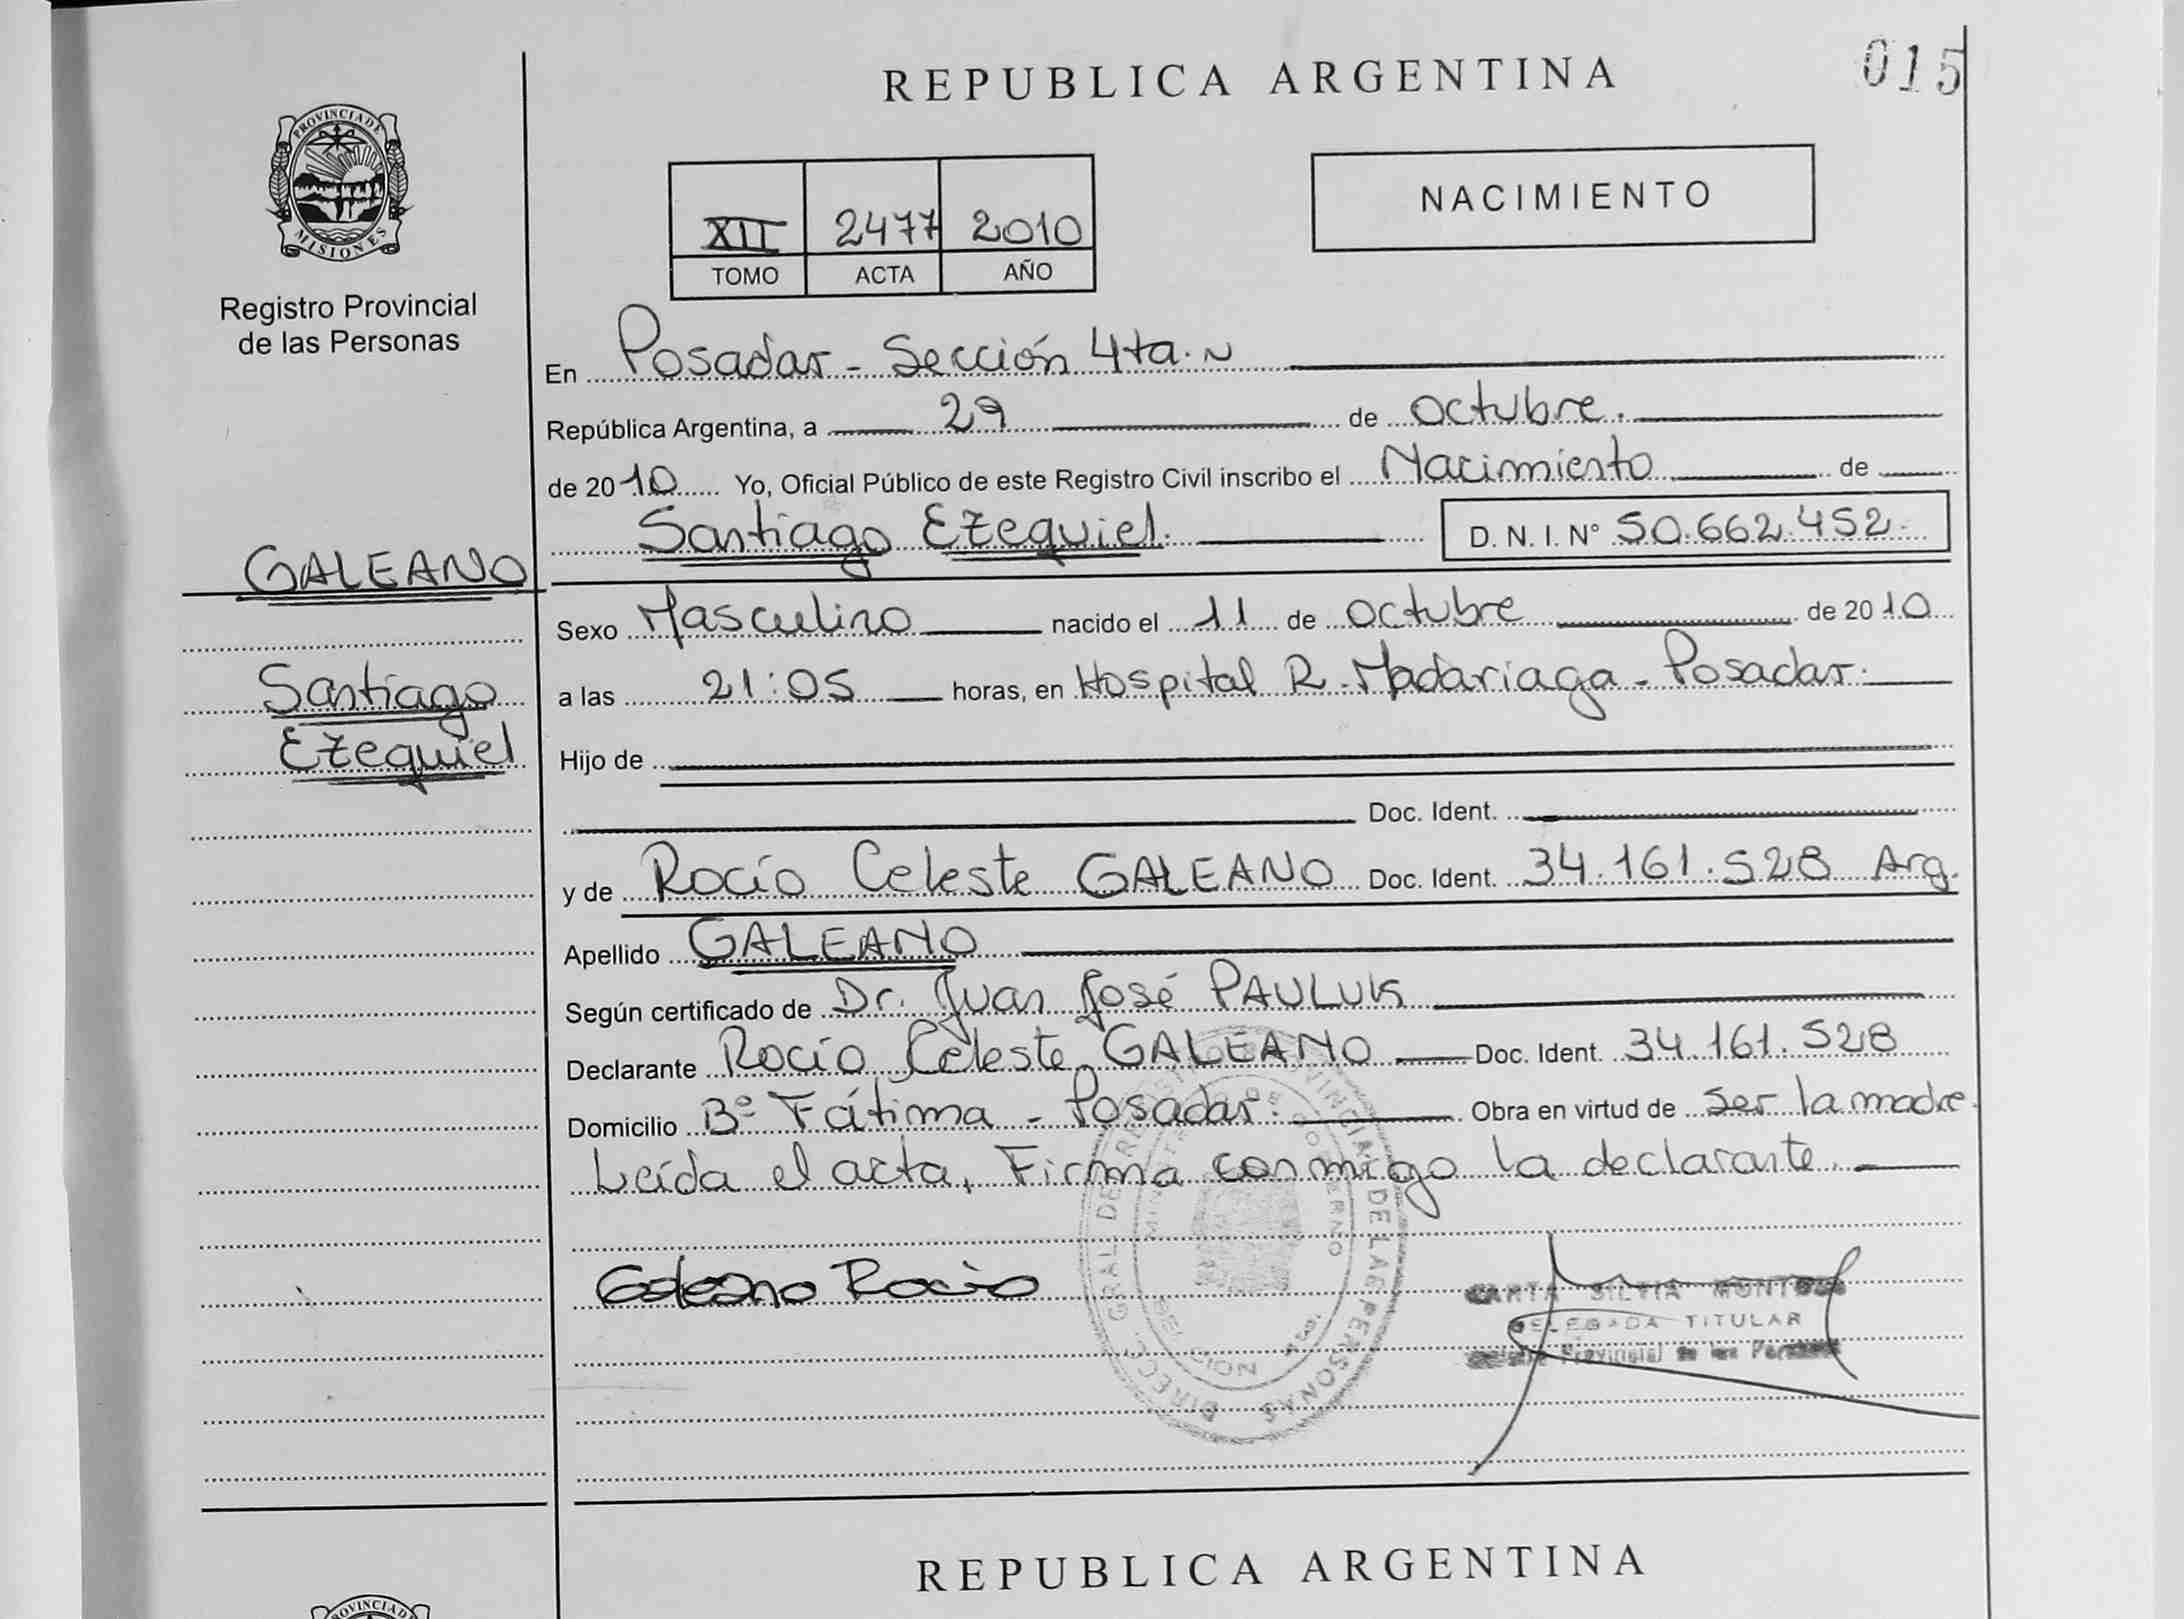 REPUBLICA ARGENTINA
015
PROVINCIA DE
MISIONES
Registro Provincial
de las Personas
XII 2477 2010
TOMO ACTA AÑO
NACIMIENTO
En Posadas - Sección 4ta. N
República Argentina, a 29 de octubre.
de 2010 Yo, Oficial Público de este Registro Civil inscribo el Nacimiento de
Santiago Ezequiel. D. N. I. Nº 50.662.452.
GALEANO
Santiago
Ezequiel
Sexo Masculino nacido el 11 de octubre de 2010
a las 21:05 horas, en Hospital R. Madariaga - Posadas.
Hijo de
Doc. Ident.
y de Rocío Celeste GALEANO Doc. Ident. 34.161.528 Arg.
Apellido GALEANO
Según certificado de Dr. Juan José PAULUK
Declarante Rocío Celeste GALEANO Doc. Ident. 34.161.528
Domicilio Bº Fátima - Posadas. Obra en virtud de ser la madre.
Leída el acta, Firma conmigo la declarante.
Galeano Rocio
DIREC. GRAL. DE REGISTRO PROVINCIAL DE LAS PERSONAS
SILVIA
DELEGADA TITULAR
Provincial de las Personas
REPUBLICA ARGENTINA
PROVINCIA DE